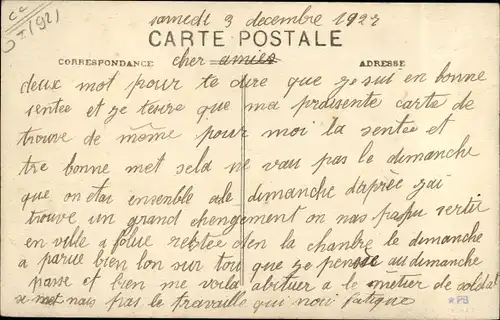 cc
samedi 3 decembre 1921
CARTE POSTALE
CORRESPONDANCE cher amies ADRESSE
deux mot pour te dire que je sui en bonne
sentee et je tesire que ma prèisente carte de
trouve de môme pour moi la sentee et
tre bonne met sela ne vau pas le dimanche
que on etai ensenble ale dimanche d'àprèc jai
trouve un grand chengement on nas pas pu sertir
en ville a folue restée den la chanbre le dimanche
a parue bien lon sur tou que je pensè au dimanche
passe et bien me voila abituer a le mètier de soldat
se met nais pas le travaille qui nous fatique
*PB